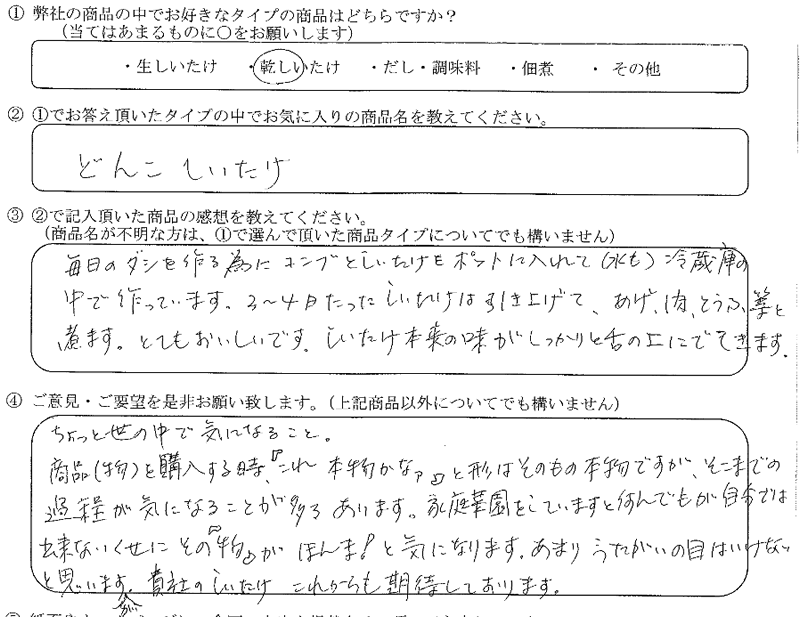 ① 弊社の商品の中でお好きなタイプの商品はどちらですか？
（当てはあまるものに○をお願いします）
・生しいたけ ・乾しいたけ ・だし・調味料 ・佃煮 ・その他
② ①でお答え頂いたタイプの中でお気に入りの商品名を教えてください。
どんこ しいたけ
③ ②で記入頂いた商品の感想を教えてください。
（商品名が不明な方は、①で選んで頂いた商品タイプについてでも構いません）
毎日のダシを作る為にコンブとしいたけをポットに入れて（水も）冷蔵庫の
中で作っています。3〜4日たったしいたけは引き上げて、あげ、肉、とうふ、等と
煮ます。とてもおいしいです。しいたけ本来の味がしっかりと舌の上にでてきます。
④ ご意見・ご要望を是非お願い致します。（上記商品以外についてでも構いません）
ちょっと世の中で気になること。
商品（物）を購入する時、『これ 本物かなァ』と形はそのもの本物ですが、そこまでの
過程が気になることが多々あります。家庭菜園をしていますと何んでもが自分では
出来ないくせにその“物”が ほんま！と気になります。あまり うたがいの目はいけない
と思います。貴社のしいたけ これからも期待しております。